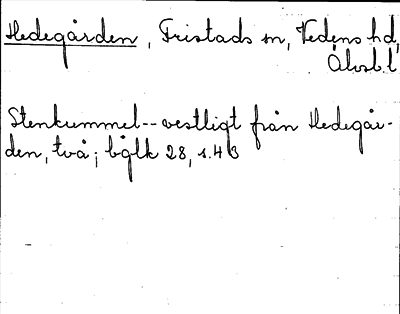 Hedegården, Fristads sn, Vedens hd,
Älvsb.l
Stenkummel--vestligt från Hedegår-
den, två; bglk 28, s.43